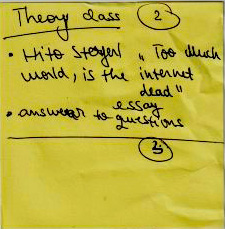 Theory class 2
• Hito Steyerl „Too Much
world, is the internet
dead"
essay
• answer to questions
3